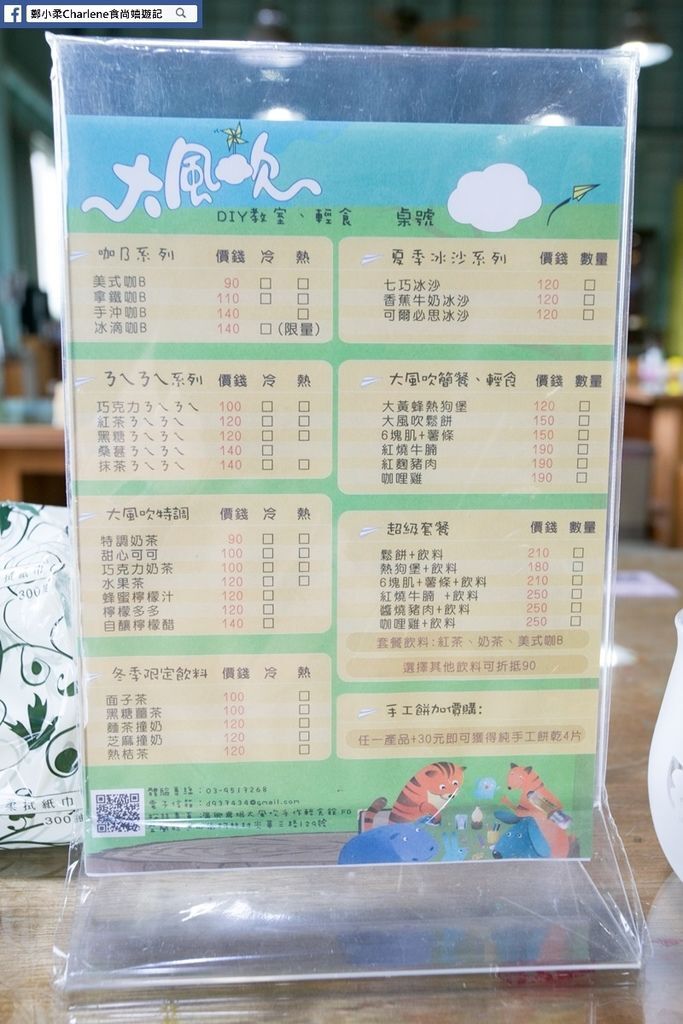 鄭小柔Charlene食尚嬉遊記
大風吹
DIY教室、輕食 桌號
咖B系列 價錢 冷 熱
美式咖B 90 □ □
拿鐵咖B 110 □ □
手沖咖B 140 □
冰滴咖B 140 □(限量)
ㄋㄟㄋㄟ系列 價錢 冷 熱
巧克力ㄋㄟㄋㄟ 100 □ □
紅茶ㄋㄟㄋㄟ 120 □ □
黑糖ㄋㄟㄋㄟ 120 □ □
桑葚ㄋㄟㄋㄟ 140 □
抹茶ㄋㄟㄋㄟ 140 □ □
大風吹特調 價錢 冷 熱
特調奶茶 90 □ □
甜心可可 100 □ □
巧克力奶茶 100 □ □
水果茶 120 □ □
蜂蜜檸檬汁 120 □
檸檬多多 120 □
自釀檸檬醋 140 □
冬季限定飲料 價錢 冷 熱
面子茶 100 □
黑糖薑茶 100 □
麵茶撞奶 120 □
芝麻撞奶 120 □
熱桔茶 120 □
夏季冰沙系列 價錢 數量
七巧冰沙 120 □
香蕉牛奶冰沙 120 □
可爾必思冰沙 120 □
大風吹簡餐、輕食 價錢 數量
大黃蜂熱狗堡 120 □
大風吹鬆餅 150 □
6塊肌+薯條 150 □
紅燒牛腩 190 □
紅麴豬肉 190 □
咖哩雞 190 □
超級套餐 價錢 數量
鬆餅+飲料 210 □
熱狗堡+飲料 180 □
6塊肌+薯條+飲料 210 □
紅燒牛腩 +飲料 250 □
醬燒豬肉+飲料 250 □
咖哩雞+飲料 250 □
套餐飲料:紅茶、奶茶、美式咖B
選擇其他飲料可折抵90
手工餅加價購:
任一產品+30元即可獲得純手工餅乾4片
專線:03-9517268
電子信箱:d937434@gmail.com
大風吹手作輕食館 FB
三路129號
拭紙巾
300
零拭紙巾
300